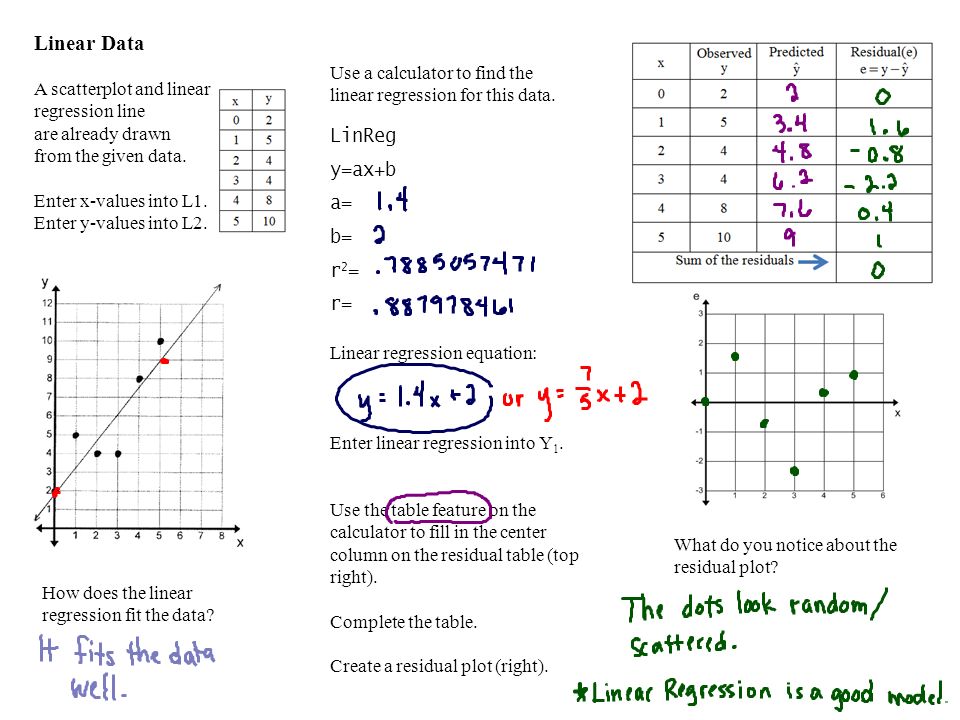 Linear Data
A scatterplot and linear
regression line
are already drawn
from the given data.
Enter x-values into L1.
Enter y-values into L2.
x y
0 2
1 5
2 4
3 4
4 8
5 10
y
12
11
10
9
8
7
6
5
4
3
2
1
1 2 3 4 5 6 7 8
x
How does the linear
regression fit the data?
It fits the data
well.
Use a calculator to find the
linear regression for this data.
LinReg
y=ax+b
a= 1.4
b= 2
r²= .7885057471
r= .887978461
Linear regression equation:
y = 1.4x +2 or y = 7/5 x+2
Enter linear regression into Y₁.
Use the table feature on the
calculator to fill in the center
column on the residual table (top
right).
Complete the table.
Create a residual plot (right).
x Observed y Predicted ŷ Residual(e) e = y − ŷ
0 2 2 0
1 5 3.4 1.6
2 4 4.8 -0.8
3 4 6.2 -2.2
4 8 7.6 0.4
5 10 9 1
Sum of the residuals 0
e
3
2
1
x
-1
-2
-3
1 2 3 4 5 6
What do you notice about the
residual plot?
The dots look random/
scattered.
*Linear Regression is a good model.